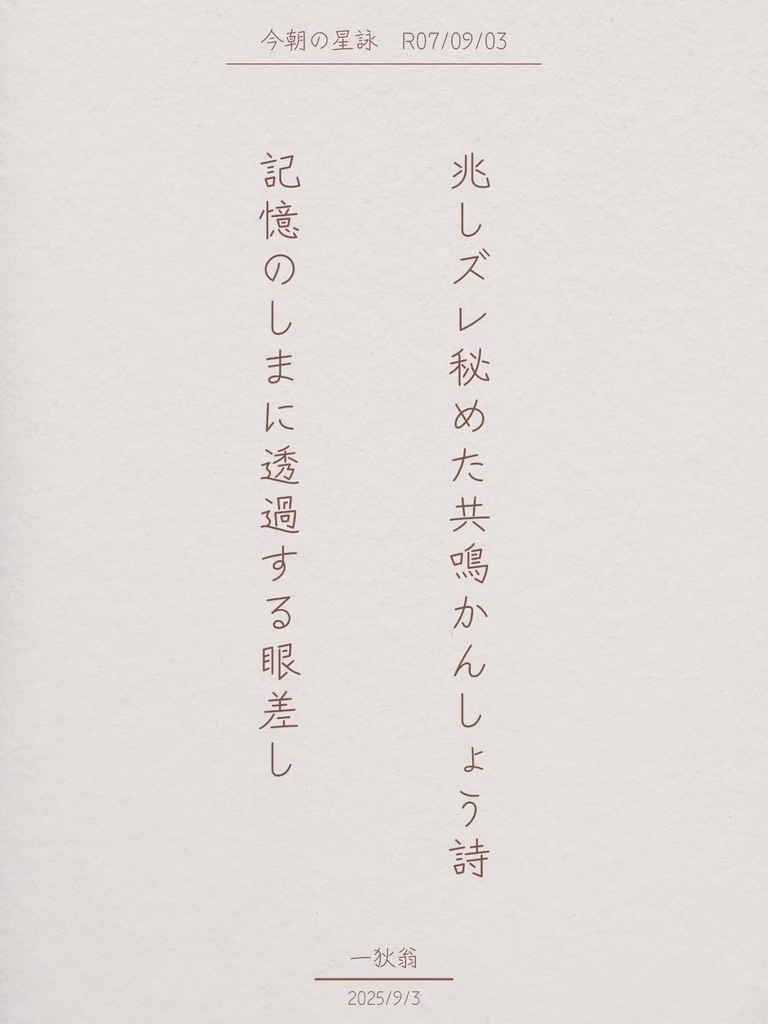 今朝の星詠　R07/09/03
兆しズレ秘めた共鳴かんしょう詩
記憶のしまに透過する眼差し
一狄翁
2025/9/3